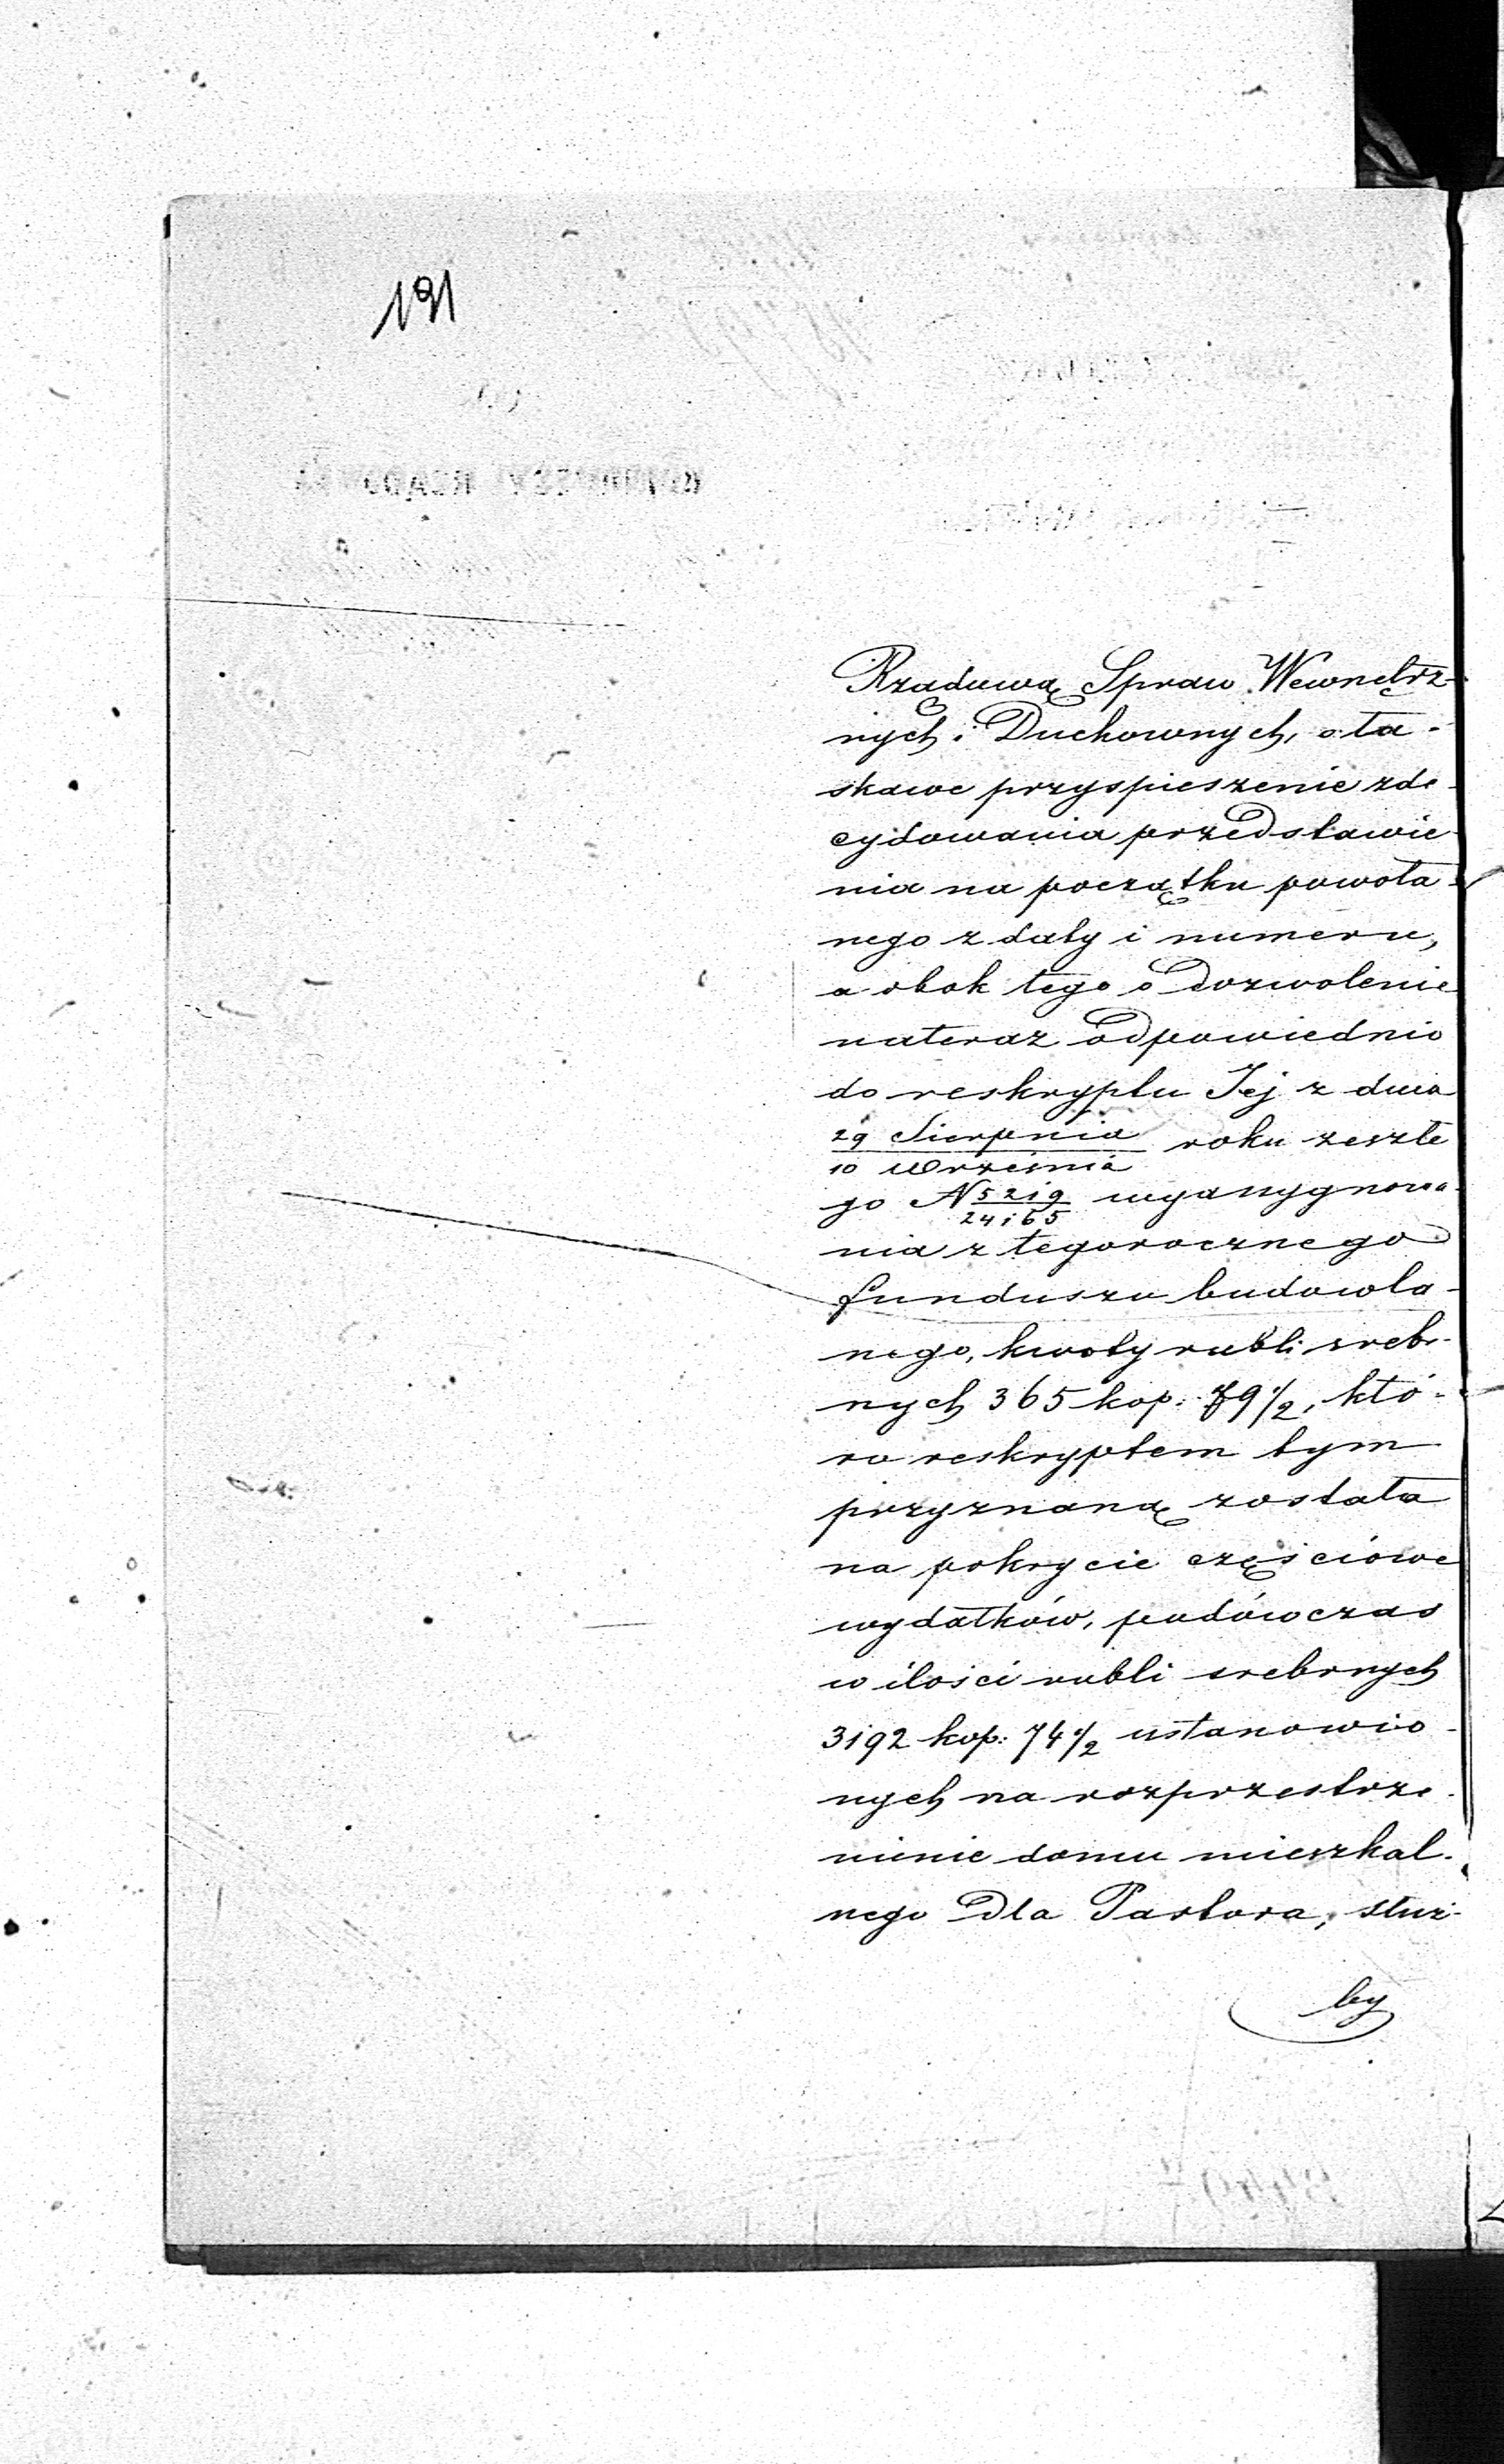 191
Rządową Spraw Wewnętrz-
nych i Duchownych, o ła-
skawe przyspieszenie zde-
cydowania przedstawie-
nia na początku powoła-
nego z daty i numeru,
a obok tego o dozwolenie
nateraz odpowiednio
do reskryptu Jej z dnia
29 Sierpnia / 10 Września roku zeszłe
go N 5219/24165 wyasygnowa-
nia z tegorocznego
funduszu budowla-
nego, kwoty rubli srebr-
nych 365 kop: 79 1/2, któ-
ra reskryptem tym
przyznaną została
na pokrycie częściowe
wydatków, podówczas
w ilości rubli srebrnych
3192 kop: 74 1/2 ustanowio-
nych na rozprzestrze-
nienie domu mieszkal-
nego dla Pastora, służ-
by